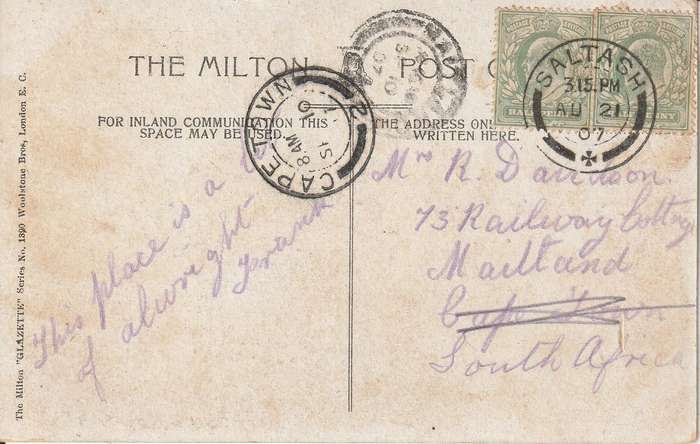 THE MILTON POST C
FOR INLAND COMMUNICATION THIS
SPACE MAY BE USED.
THE ADDRESS ONL
WRITTEN HERE.
SALTASH
3.15.PM
AU 21
07
CAPE TOWN
2
8 AM
The Milton "GLAZETTE" Series No. 1390 Woolstone Bros., London E. C.
This place is a
of alwright
Frank
Mrs R. Davidson.
73 Railway Cottage
Maitland
Cape Town
South Africa